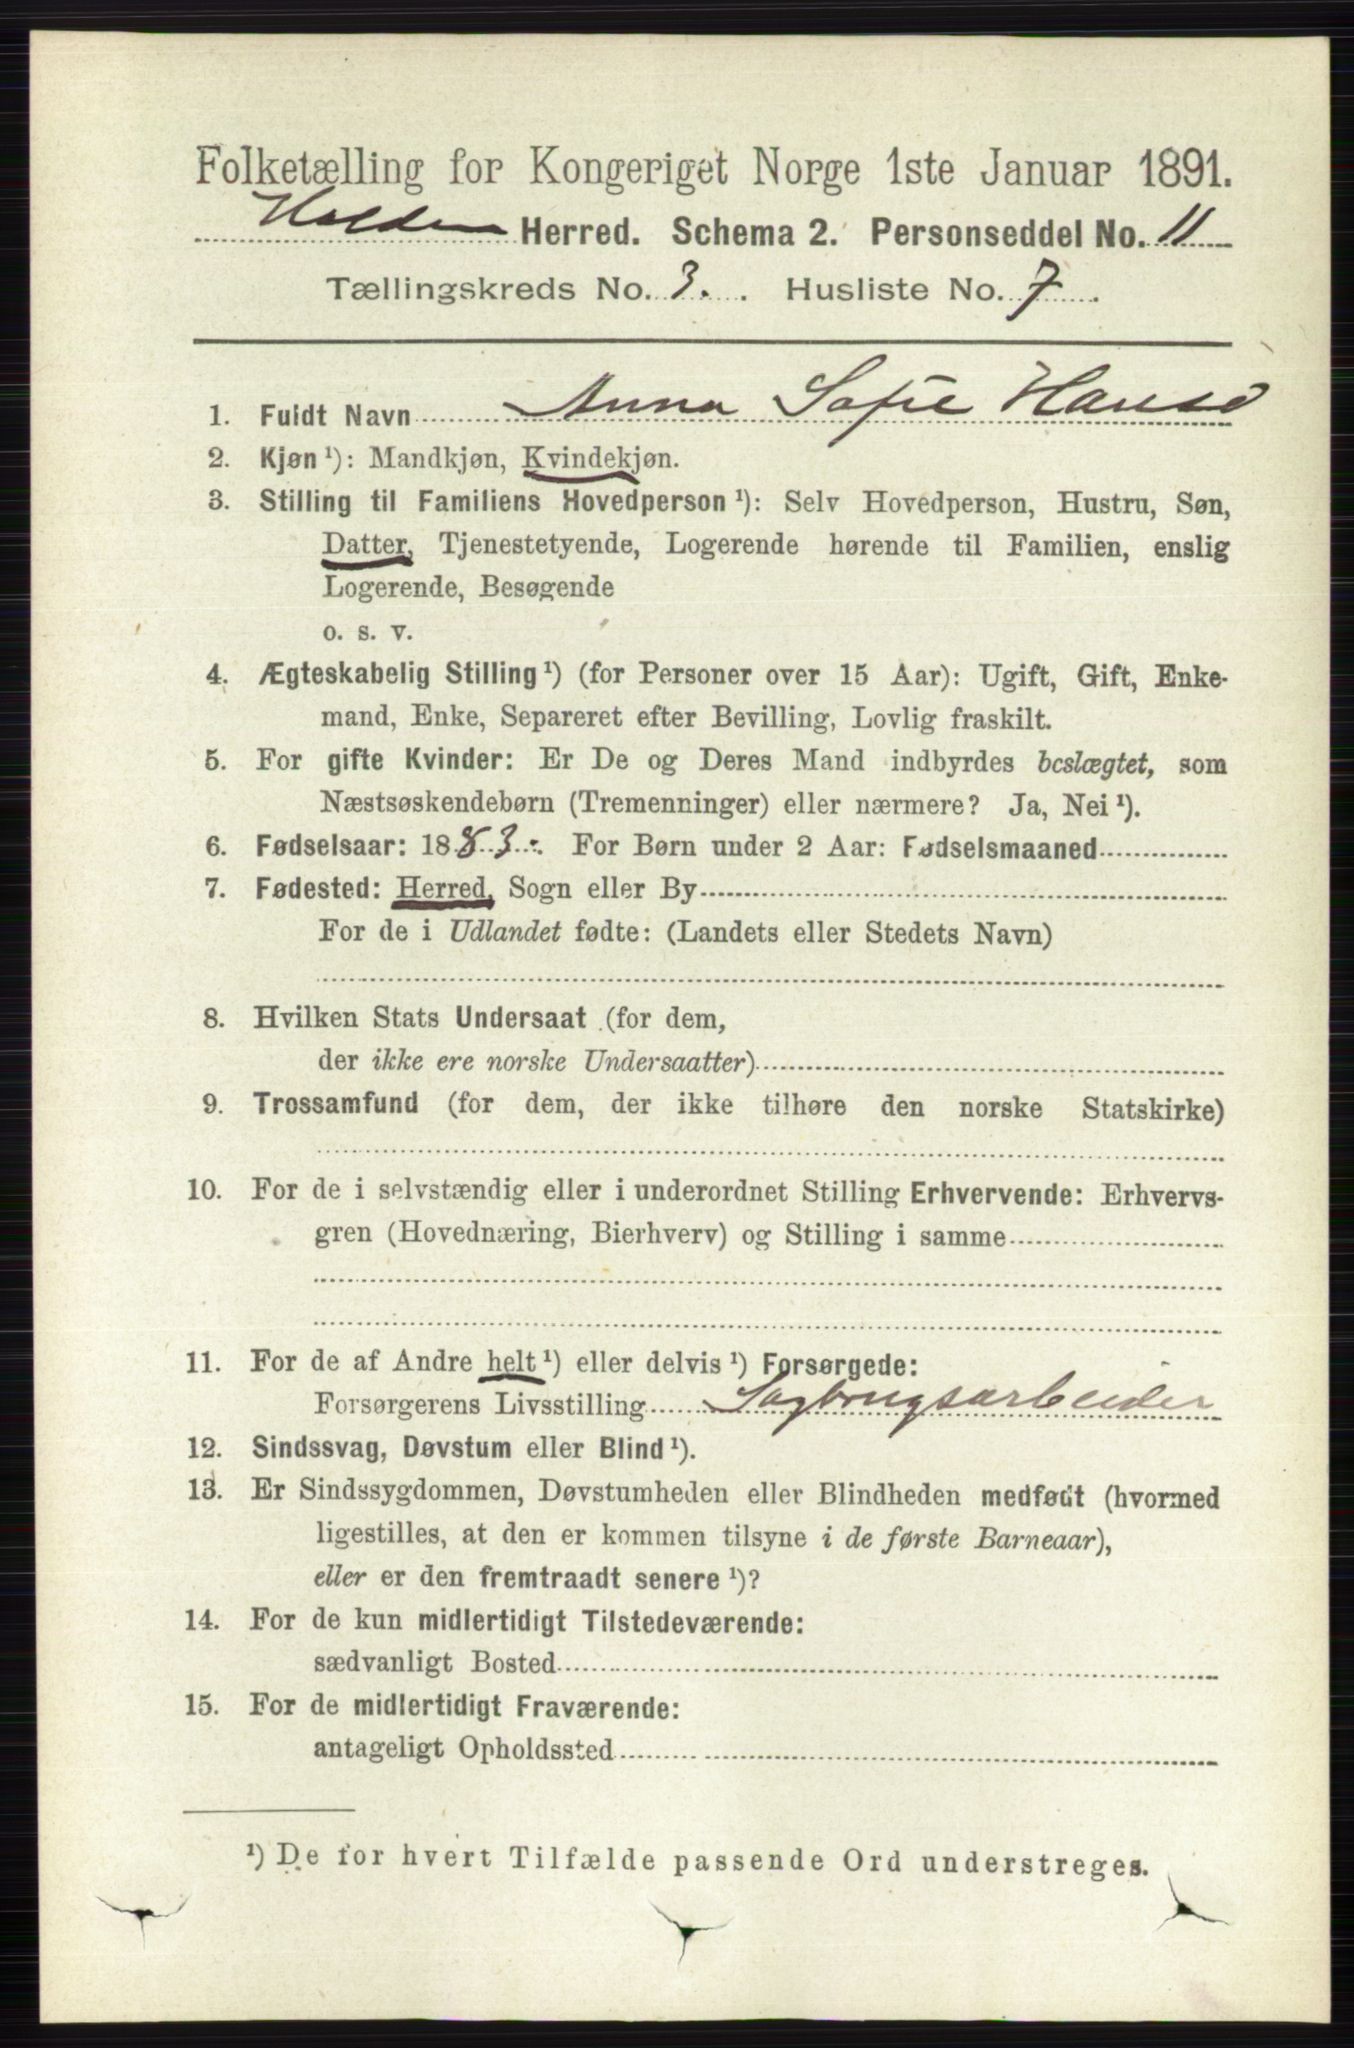 Folketælling for Kongeriget Norge 1ste Januar 1891.
Holden Herred. Schema 2. Personseddel No. 11
Tællingskreds No. 3. Husliste No. 7
1. Fuldt Navn Anna Sofie Hansd
2. Kjøn ¹): Mandkjøn, Kvindekjøn.
3. Stilling til Familiens Hovedperson ¹): Selv Hovedperson, Hustru, Søn,
Datter, Tjenestetyende, Logerende hørende til Familien, enslig
Logerende, Besøgende
o. s. v.
4. Ægteskabelig Stilling ¹) (for Personer over 15 Aar): Ugift, Gift, Enke-
mand, Enke, Separeret efter Bevilling, Lovlig fraskilt.
5. For gifte Kvinder: Er De og Deres Mand indbyrdes beslægtet, som
Næstsøskendebørn (Tremenninger) eller nærmere? Ja, Nei ¹).
6. Fødselsaar: 1883. For Børn under 2 Aar: Fødselsmaaned
7. Fødested: Herred, Sogn eller By
For de i Udlandet fødte: (Landets eller Stedets Navn)
8. Hvilken Stats Undersaat (for dem,
der ikke ere norske Undersaatter)
9. Trossamfund (for dem, der ikke tilhøre den norske Statskirke)
10. For de i selvstændig eller i underordnet Stilling Erhvervende: Erhvervs-
gren (Hovednæring, Bierhverv) og Stilling i samme
11. For de af Andre helt ¹) eller delvis ¹) Forsørgede:
Forsørgerens Livsstilling Sagbrugsarbeider
12. Sindssvag, Døvstum eller Blind ¹).
13. Er Sindssygdommen, Døvstumheden eller Blindheden medfødt (hvormed
ligestilles, at den er kommen tilsyne i de første Barneaar),
eller er den fremtraadt senere ¹)?
14. For de kun midlertidigt Tilstedeværende:
sædvanligt Bosted
15. For de midlertidigt Fraværende:
antageligt Opholdssted
¹) De for hvert Tilfælde passende Ord understreges.